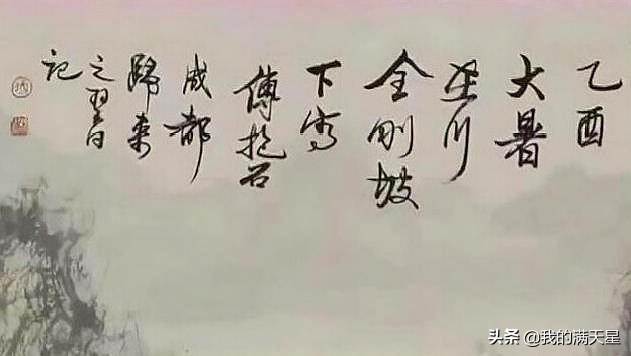 乙酉
大暑
川
金刚坡
下写
傅抱石
成都
歸来
之翌日
记
头条 @我的满天星